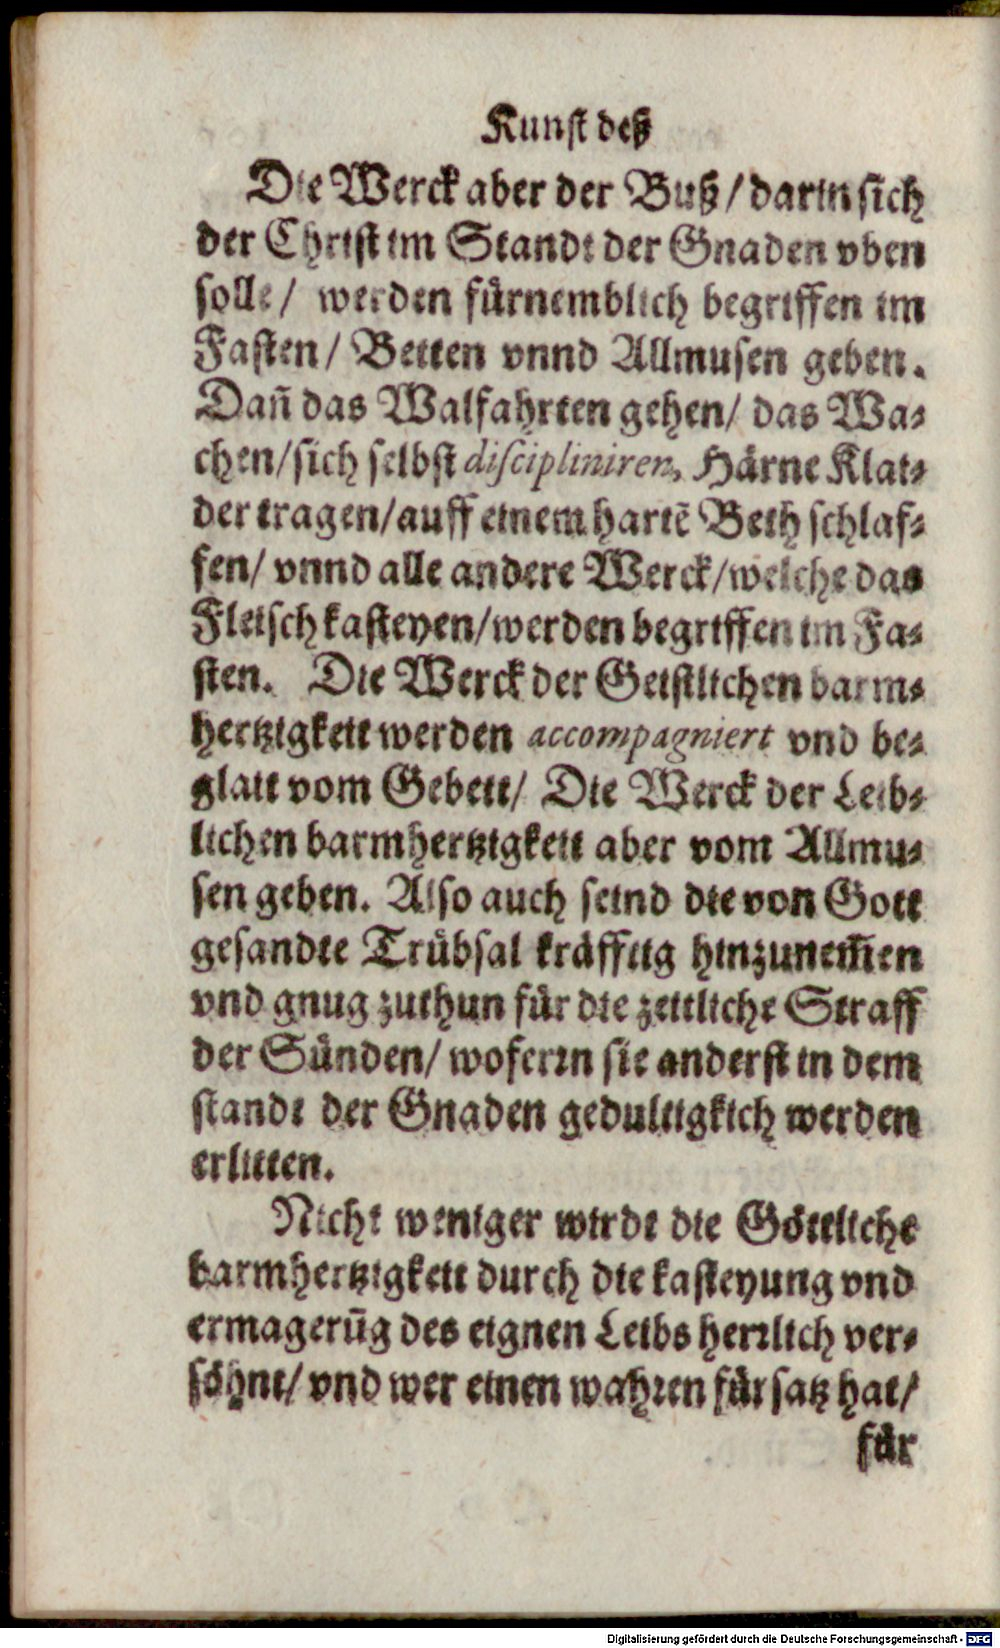 Kunst deß
Die Werck aber der Buß / darin sich
der Christ im Standt der Gnaden vben
solle / werden fürnemblich begriffen im
Fasten / Betten vnnd Allmusen geben.
Dañ das Walfahrten gehen / das Wa-
chen / sich selbst disciplíniren, Härne Klai-
der tragen / auff einem hartẽ Beth schlaf-
fen / vnnd alle andere Werck / welche das
Fleisch kasteyen / werden begriffen im Fa-
sten. Die Werck der Geistlichen barm-
hertzigkeit werden accompagniert vnd be-
glait vom Gebett / Die Werck der Leib-
lichen barmhertzigkeit aber vom Allmu-
sen geben. Also auch seind die von Gott
gesandte Trübsal kräfftig hinzunem̃en
vnd gnug zuthun für die zeitliche Straff
der Sünden / woferrn sie anderst in dem
standt der Gnaden gedultigkich werden
erlitten.
Nicht weniger wirdt die Göttliche
barmhertzigkeit durch die kasteyung vnd
ermagerũg des eignen Leibs herrlich ver-
söhnt / vnd wer einen wahren fürsatz hat /
für
Digitalisierung gefördert durch die Deutsche Forschungsgemeinschaft - DFG